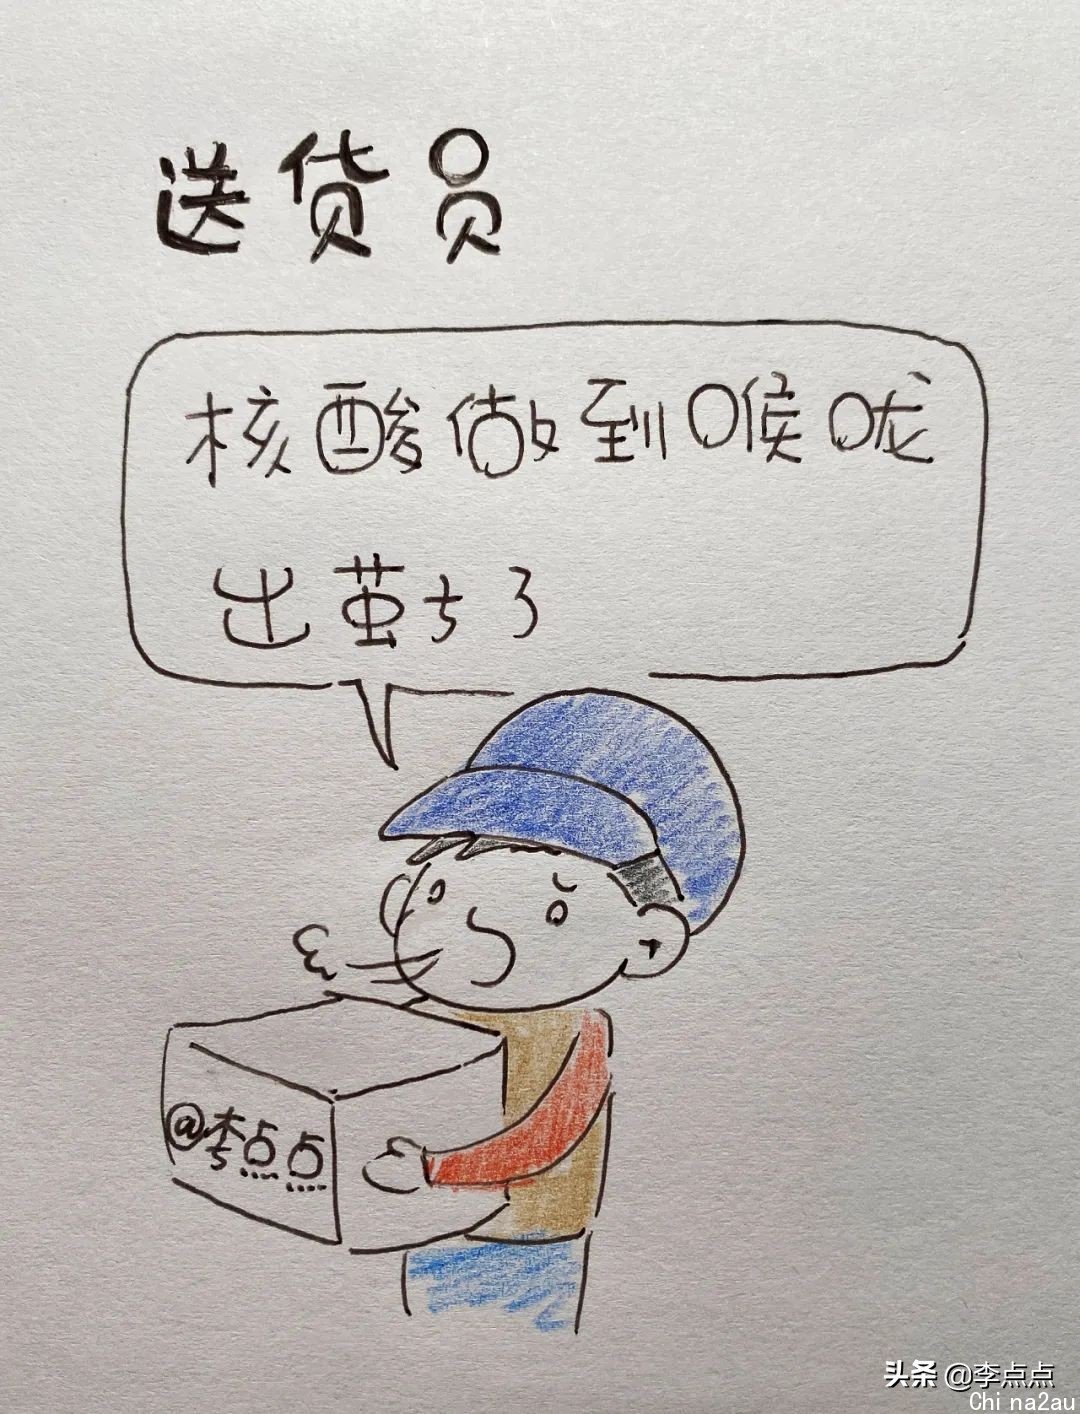 送货员
核酸做到喉咙
出茧子了
@李点点
头条 @李点点
Chi na2au